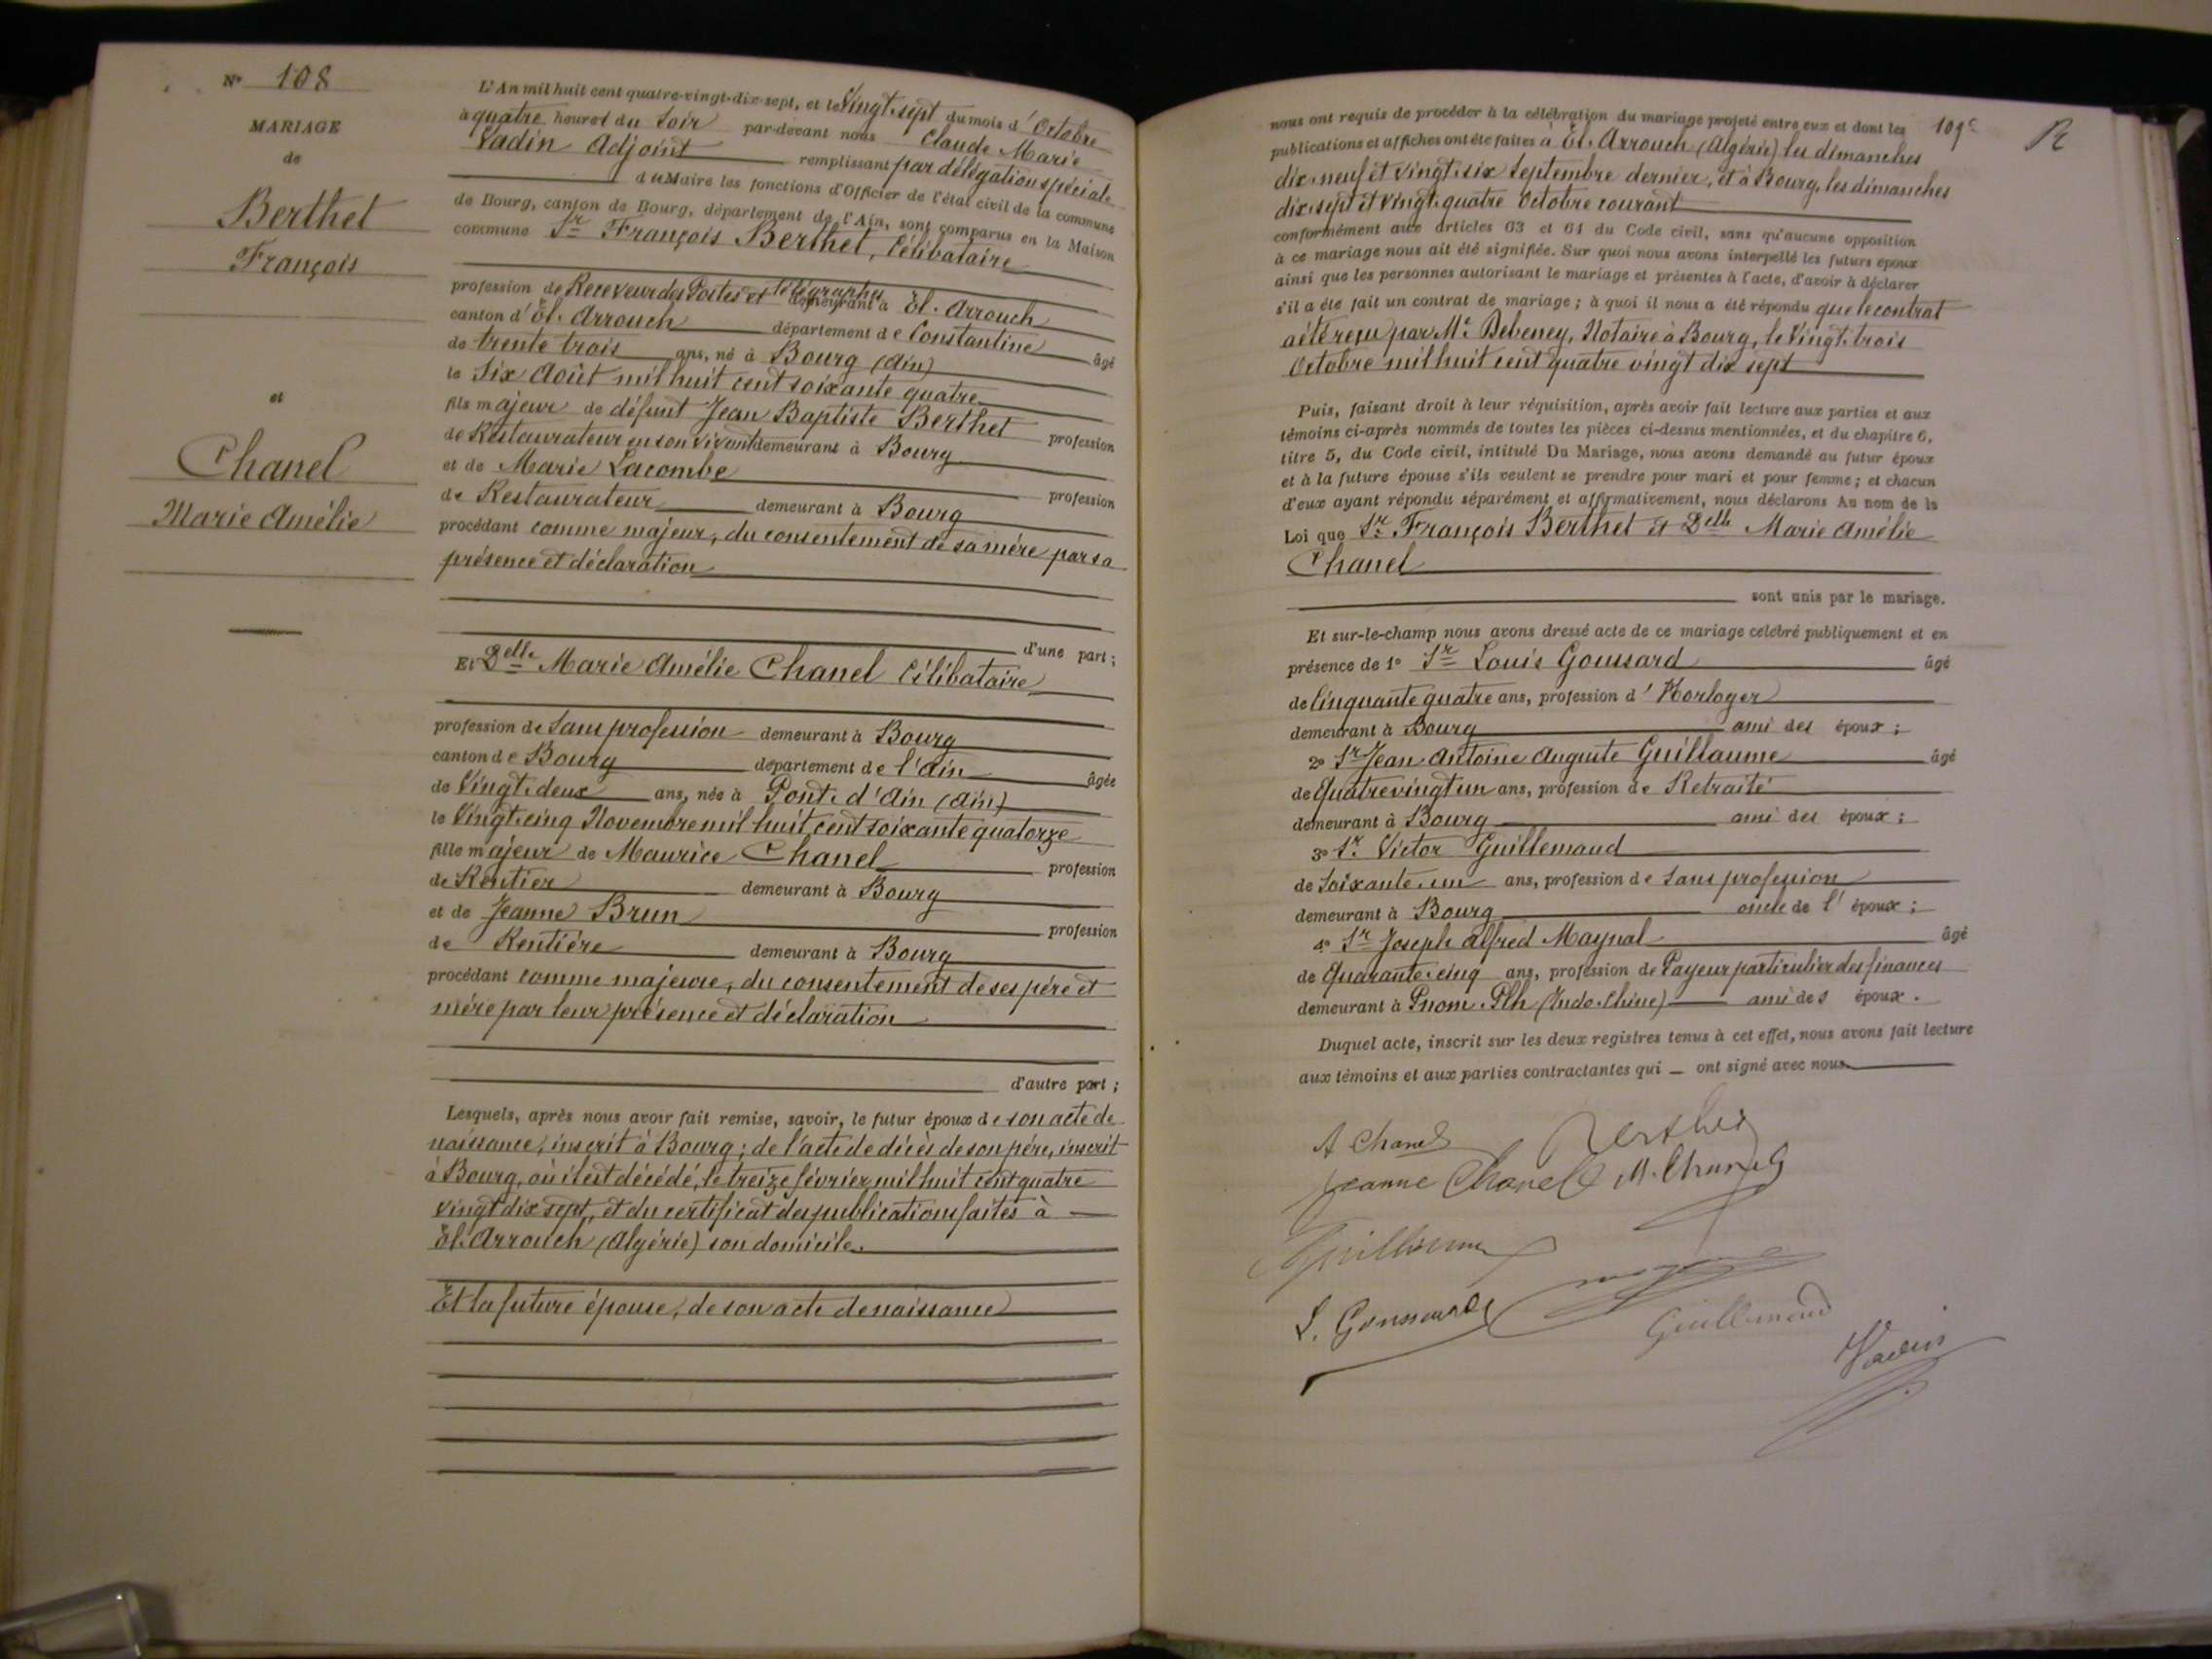 N° 108
MARIAGE
de
Berthet
François
et
Chanel
Marie Amélie
L'An mil huit cent quatre-vingt-dix-sept, et le Vingt-sept du mois d'Octobre
à quatre heures du Soir par-devant nous Claude Marie
Vadin Adjoint remplissant par délégation spéciale
du Maire les fonctions d'Officier de l'état civil de la commune
de Bourg, canton de Bourg, département de l'Ain, sont comparus en la Maison
commune Sr François Berthet, Célibataire
profession de Receveur des Postes et télégraphes demeurant à El-Arrouch
canton d'El-Arrouch département de Constantine âgé
de trente trois ans, né à Bourg (Ain)
le Six Août mil huit cent soixante quatre
fils majeur de défunt Jean Baptiste Berthet profession
de Restaurateur en son vivant demeurant à Bourg
et de Marie Lacombe profession
de Restaurateur demeurant à Bourg
procédant comme majeur, du consentement de sa mère par sa
présence et déclaration
d'une part ;
Et Delle Marie Amélie Chanel Célibataire
profession de Sans profession demeurant à Bourg
canton de Bourg département de l'Ain âgée
de Vingt-deux ans, née à Pont-d'Ain (Ain)
le Vingt-cinq Novembre mil huit cent soixante quatorze
fille majeur de Maurice Chanel profession
de Rentier demeurant à Bourg
et de Jeanne Brun profession
de Rentière demeurant à Bourg
procédant comme majeure, du consentement de ses père et
mère par leur présence et déclaration
d'autre part ;
Lesquels, après nous avoir fait remise, savoir, le futur époux de son acte de
naissance, inscrit à Bourg ; de l'acte de décès de son père, inscrit
à Bourg, où il est décédé, le treize février mil huit cent quatre
vingt dix sept, et du certificat des publications faites à
El-Arrouch (Algérie) son domicile.
Et la future épouse, de son acte de naissance
109e
R
nous ont requis de procéder à la célébration du mariage projeté entre eux et dont les
publications et affiches ont été faites à El-Arrouch (Algérie) les dimanches
dix-neuf et vingt-six Septembre dernier, et à Bourg, les dimanches
dix-sept et vingt-quatre Octobre courant
conformément aux articles 63 et 64 du Code civil, sans qu'aucune opposition
à ce mariage nous ait été signifiée. Sur quoi nous avons interpellé les futurs époux
ainsi que les personnes autorisant le mariage et présentes à l'acte, d'avoir à déclarer
s'il a été fait un contrat de mariage ; à quoi il nous a été répondu que le contrat
a été reçu par Me Debeney, Notaire à Bourg, le Vingt-trois
Octobre mil huit cent quatre vingt dix sept
Puis, faisant droit à leur réquisition, après avoir fait lecture aux parties et aux
témoins ci-après nommés de toutes les pièces ci-dessus mentionnées, et du chapitre 6,
titre 5, du Code civil, intitulé Du Mariage, nous avons demandé au futur époux
et à la future épouse s'ils veulent se prendre pour mari et pour femme ; et chacun
d'eux ayant répondu séparément et affirmativement, nous déclarons Au nom de la
Loi que Sr François Berthet et Delle Marie Amélie
Chanel
sont unis par le mariage.
Et sur-le-champ nous avons dressé acte de ce mariage célébré publiquement et en
présence de 1° Sr Louis Goussard âgé
de Cinquante quatre ans, profession d'Horloger
demeurant à Bourg ami des époux ;
2° Sr Jean Antoine Auguste Guillaume âgé
de Quatre vingt un ans, profession de Retraité
demeurant à Bourg ami des époux ;
3° Sr Victor Guillemaud
de Soixante-un ans, profession de Sans profession
demeurant à Bourg oncle de l'époux ;
4° Sr Joseph Alfred Maynal âgé
de Quarante-cinq ans, profession de Payeur particulier des finances
demeurant à Pnom-Plh (Indo-Chine) ami des époux.
Duquel acte, inscrit sur les deux registres tenus à cet effet, nous avons fait lecture
aux témoins et aux parties contractantes qui ont signé avec nous
A Chanel Berthet
Jeanne Chanel M. Chanel
Guillaume
L. Goussard
Guillemaud
Vadin